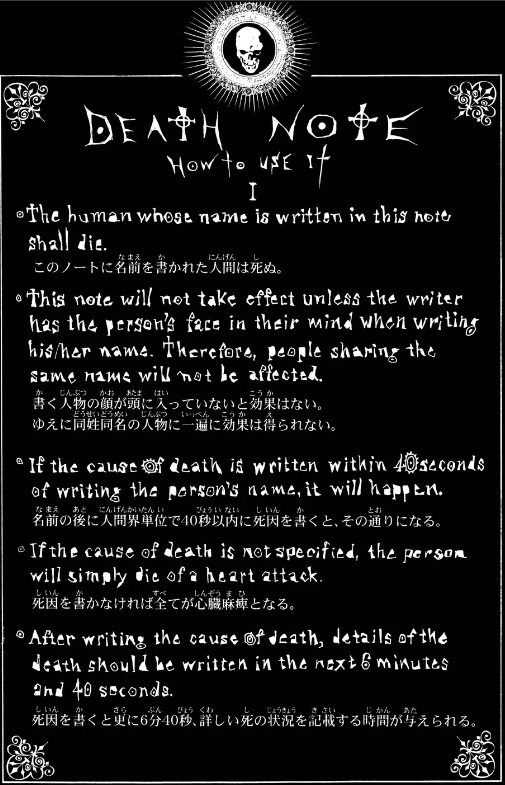 DEATH NOTE
HOW to USE It
I
The human whose name is written in this note
shall die.
このノートに名前を書かれた人間は死ぬ。
This note will not take effect unless the writer
has the person's face in their mind when writing
his/her name. Therefore, people sharing the
same name will not be affected.
書く人物の顔が頭に入っていないと効果はない。
ゆえに同姓同名の人物に一遍に効果は得られない。
If the cause of death is written within 40seconds
of writing the person's name, it will happen.
名前の後に人間界単位で40秒以内に死因を書くと、その通りになる。
If the cause of death is not specified, the person
will simply die of a heart attack.
死因を書かなければ全てが心臓麻痺となる。
After writing the cause of death, details of the
death should be written in the next 6 minutes
and 40 seconds.
死因を書くと更に6分40秒、詳しい死の状況を記載する時間が与えられる。